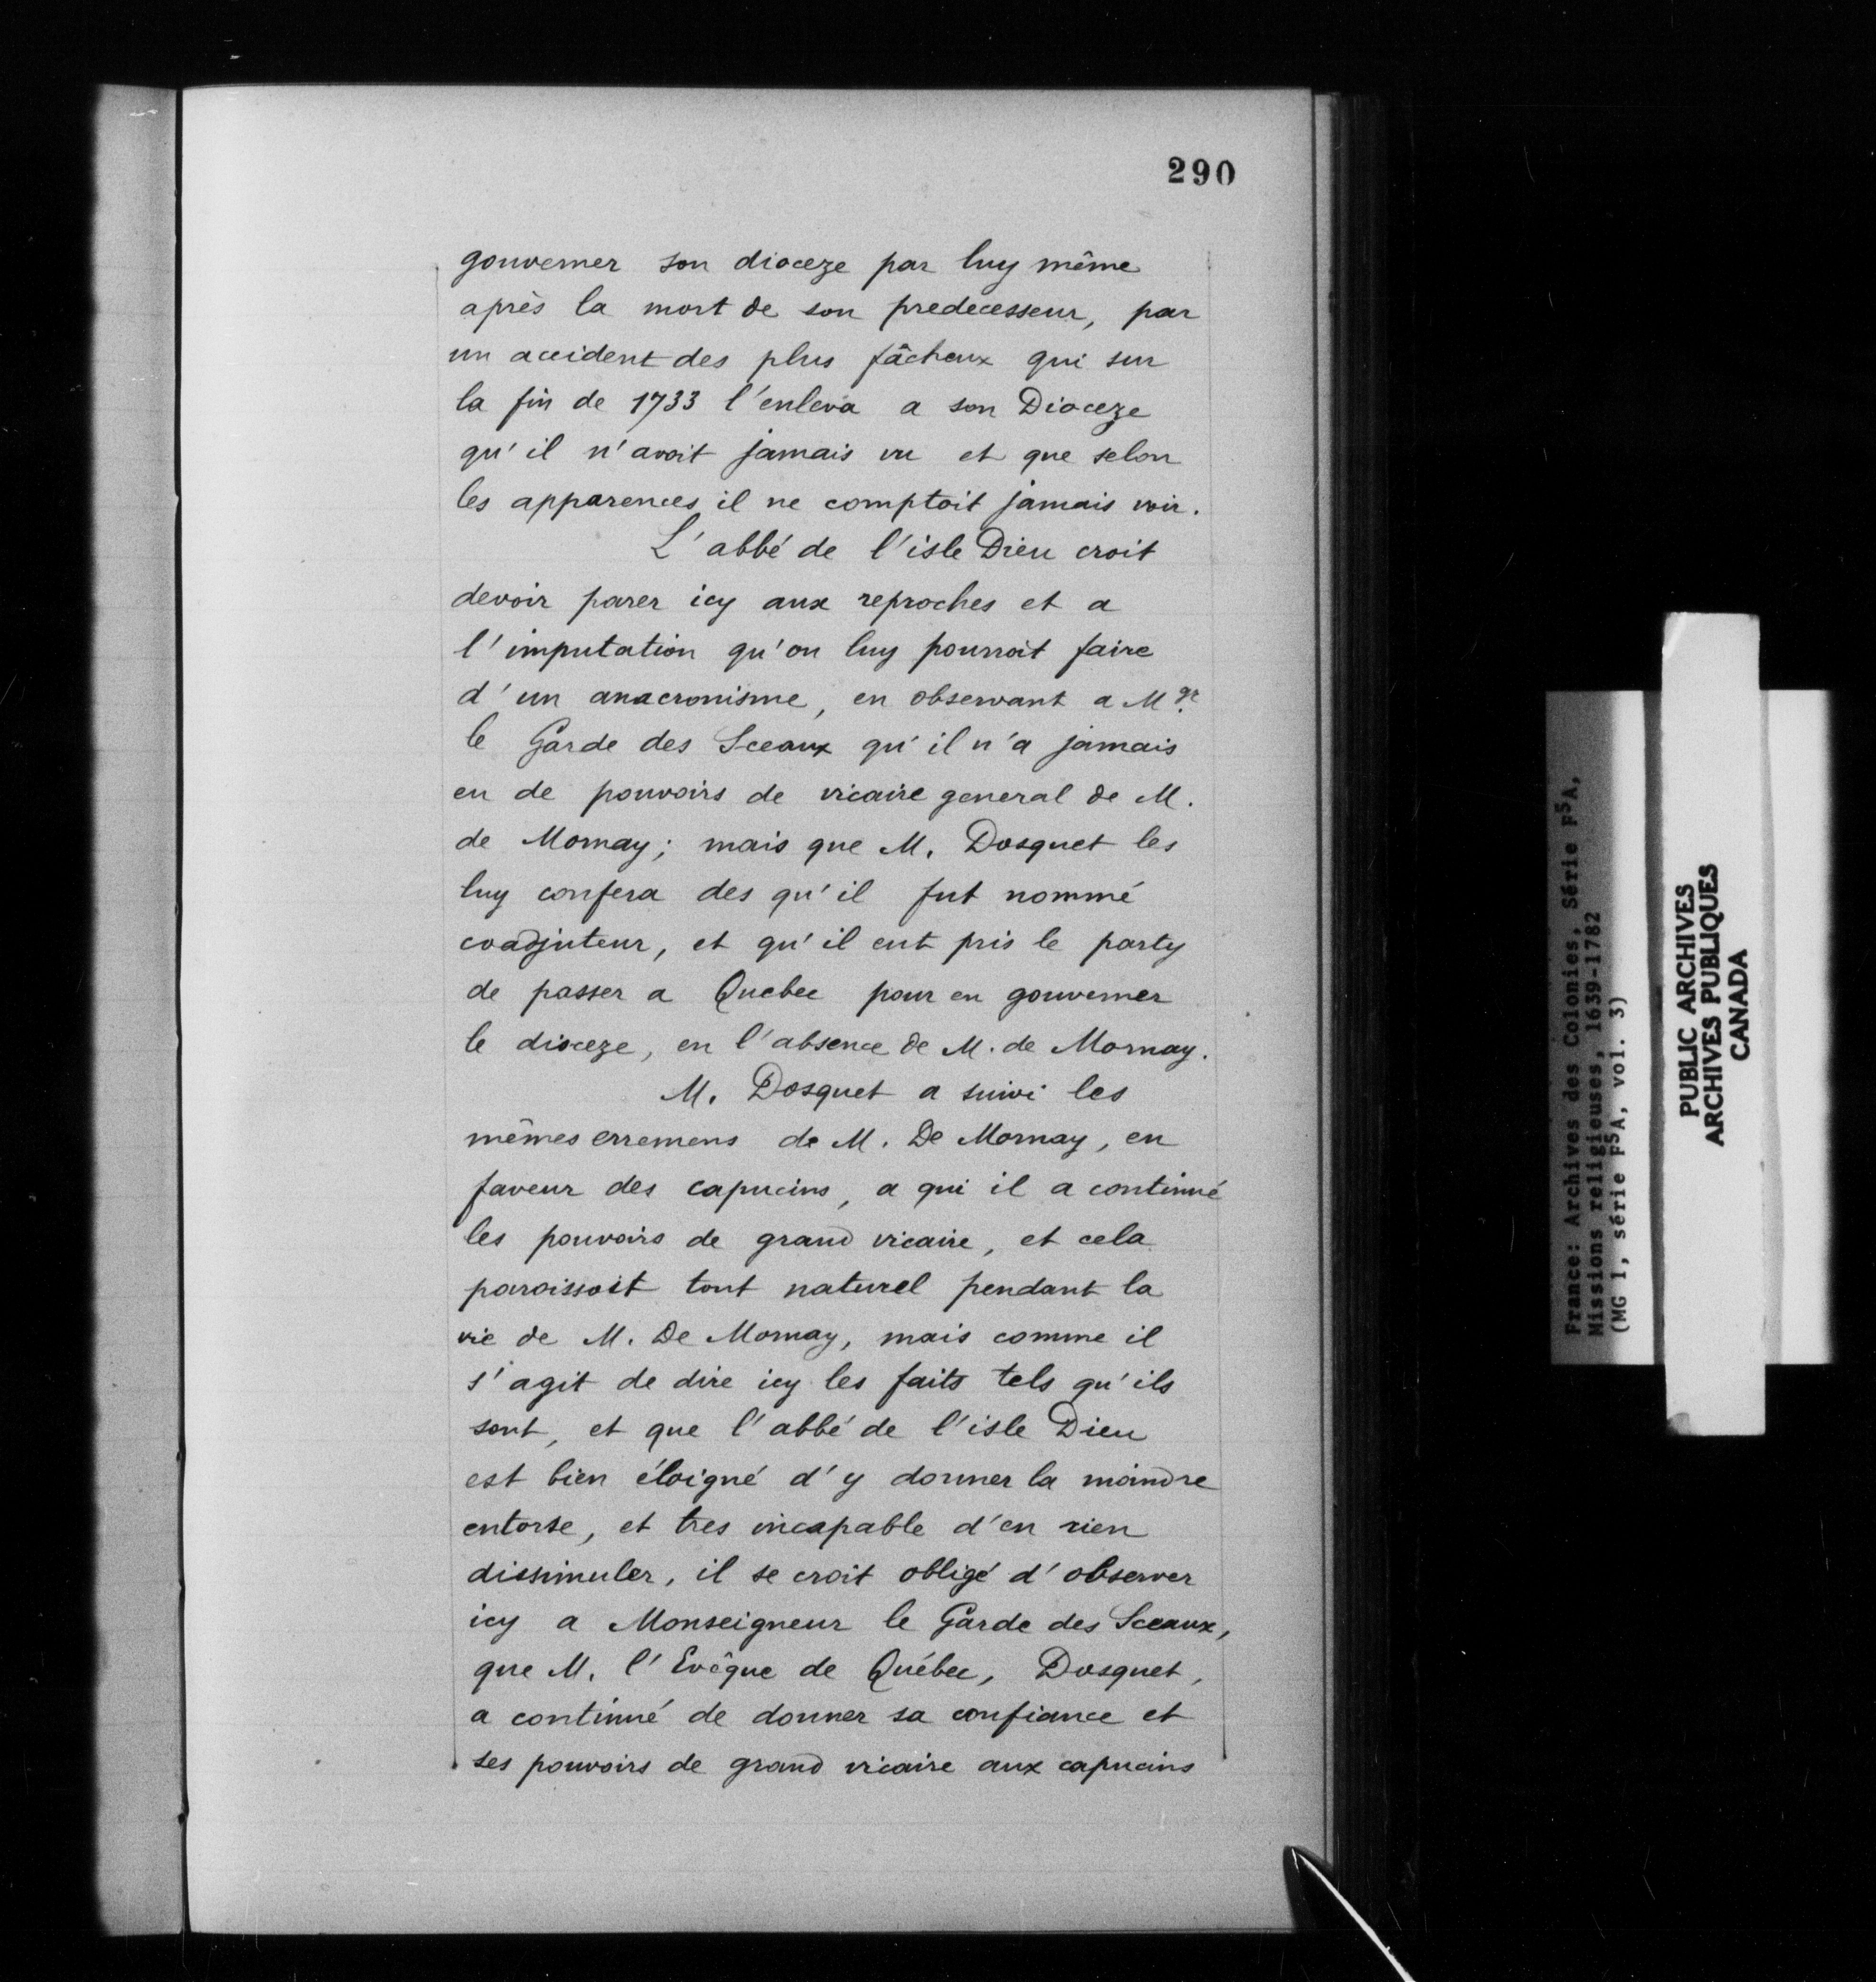 290
gouverner son dioceze par luy même
après la mort de son predecesseur, par
un accident des plus fâcheux qui sur
la fin de 1733 l'enleva a son Dioceze
qu'il n'avoit jamais vu et que selon
les apparences il ne comptoit jamais voir.
L'abbé de l'isle Dieu croit
devoir parer icy aux reproches et a
l'imputation qu'on luy pourroit faire
d'un anacronisme, en observant a Mgr.
le Garde des Sceaux qu'il n'a jamais
eu de pouvoirs de vicaire general de M.
de Mornay; mais que M. Dosquet les
luy confera des qu'il fut nommé
coadjuteur, et qu'il eut pris le party
de passer a Quebec pour en gouverner
le dioceze, en l'absence de M. de Mornay.
M. Dosquet a suivi les
mêmes erremens de M. De Mornay, en
faveur des capucins, a qui il a continué
les pouvoirs de grand vicaire, et cela
paroissoit tout naturel pendant la
vie de M. De Mornay, mais comme il
s'agit de dire icy les faits tels qu'ils
sont, et que l'abbé de l'isle Dieu
est bien éloigné d'y donner la moindre
entorse, et tres incapable d'en rien
dissimuler, il se croit obligé d'observer
icy a Monseigneur le Garde des Sceaux,
que M. l'Evêque de Québec, Dosquet,
a continué de donner sa confiance et
ses pouvoirs de grand vicaire aux capucins
France: Archives des Colonies, Série F5A,
Missions religieuses, 1639-1782
(MG 1, série F5A, vol. 3)
PUBLIC ARCHIVES
ARCHIVES PUBLIQUES
CANADA